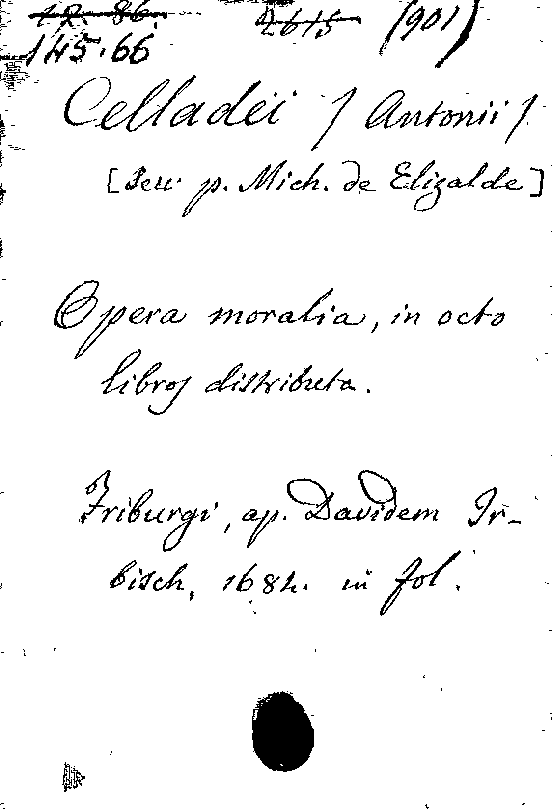 12. 86. 2615 (901)
145.66
Celladei / Antonii /.
[seu p. Mich. de Elizalde]
Opera moralia, in octo
libros distributa.
Friburgi, ap. Davidem Ir-
bisch, 1684. in fol.